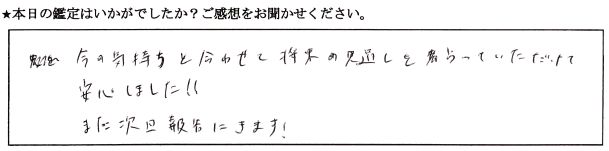 ★本日の鑑定はいかがでしたか？ご感想をお聞かせください。
今の気持ちと合わせて将来の見通しを占っていただけて
安心しました!!
また次回報告にきます!